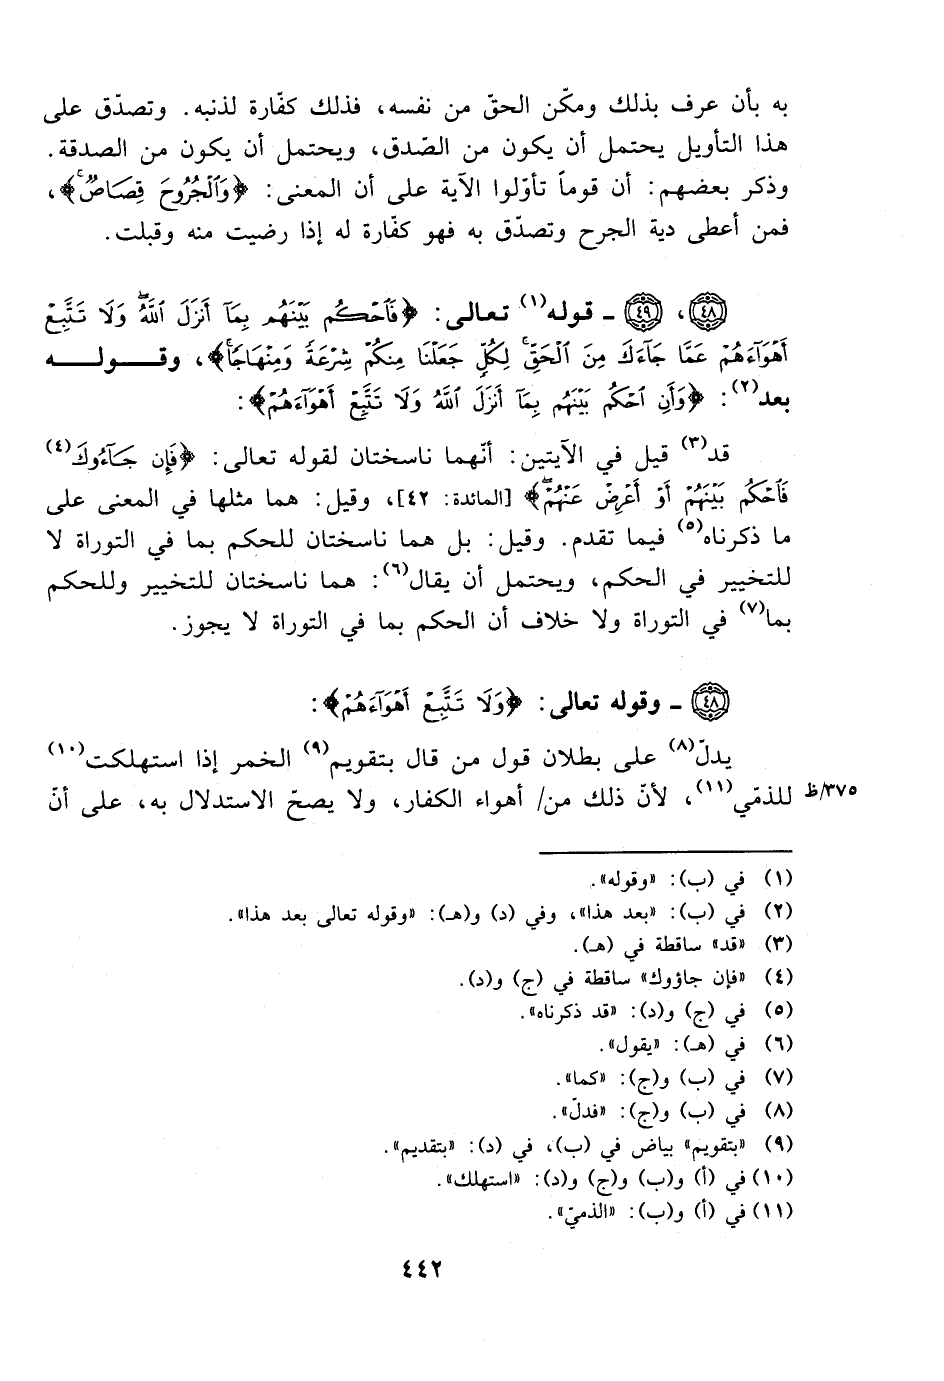 به بأن عرف بذلك ومكّن الحقّ من نفسه، فذلك كفّارة لذنبه. وتصدّق على
هذا التأويل يحتمل أن يكون من الصّدق، ويحتمل أن يكون من الصدقة.
وذكر بعضهم: أن قوماً تأوّلوا الآية على أن المعنى: ﴿وَٱلْجُرُوحَ قِصَاصٌۚ﴾،
فمن أعطى دية الجرح وتصدّق به فهو كفّارة له إذا رضيت منه وقبلت.
٤٨، ٤٩ ـ قوله(١) تعالى: ﴿فَٱحْكُم بَيْنَهُم بِمَآ أَنزَلَ ٱللَّهُۖ وَلَا تَتَّبِعْ
أَهْوَآءَهُمْ عَمَّا جَآءَكَ مِنَ ٱلْحَقِّۚ لِكُلٍّ جَعَلْنَا مِنكُمْ شِرْعَةً وَمِنْهَاجًاۚ﴾، وقـــولـــه
بعد(٢): ﴿وَأَنِ ٱحْكُم بَيْنَهُم بِمَآ أَنزَلَ ٱللَّهُ وَلَا تَتَّبِعْ أَهْوَآءَهُمْ﴾:
قد(٣) قيل في الآيتين: أنّهما ناسختان لقوله تعالى: ﴿فَإِن جَآءُوكَ(٤)
فَٱحْكُم بَيْنَهُمْ أَوْ أَعْرِضْ عَنْهُمْۖ﴾ [المائدة: ٤٢]، وقيل: هما مثلها في المعنى على
ما ذكرناه(٥) فيما تقدم. وقيل: بل هما ناسختان للحكم بما في التوراة لا
للتخيير في الحكم، ويحتمل أن يقال(٦): هما ناسختان للتخيير وللحكم
بما(٧) في التوراة ولا خلاف أن الحكم بما في التوراة لا يجوز.
٤٨ ـ وقوله تعالى: ﴿وَلَا تَتَّبِعْ أَهْوَآءَهُمْ﴾:
يدلّ(٨) على بطلان قول من قال بتقويم(٩) الخمر إذا استهلكت(١٠)
للذمّي(١١)، لأنّ ذلك من/ أهواء الكفار، ولا يصحّ الاستدلال به، على أنّ
٣٧٥/ظ
(١) في (ب): «وقوله».
(٢) في (ب): «بعد هذا»، وفي (د) و(هـ): «وقوله تعالى بعد هذا».
(٣) «قد» ساقطة في (هـ).
(٤) «فإن جاؤوك» ساقطة في (ج) و(د).
(٥) في (ج) و(د): «قد ذكرناه».
(٦) في (هـ): «يقول».
(٧) في (ب) و(ج): «كما».
(٨) في (ب) و(ج): «فدلّ».
(٩) «بتقويم» بياض في (ب)، في (د): «بتقديم».
(١٠) في (أ) و(ب) و(ج) و(د): «استهلك».
(١١) في (أ) و(ب): «الذميّ».
٤٤٢